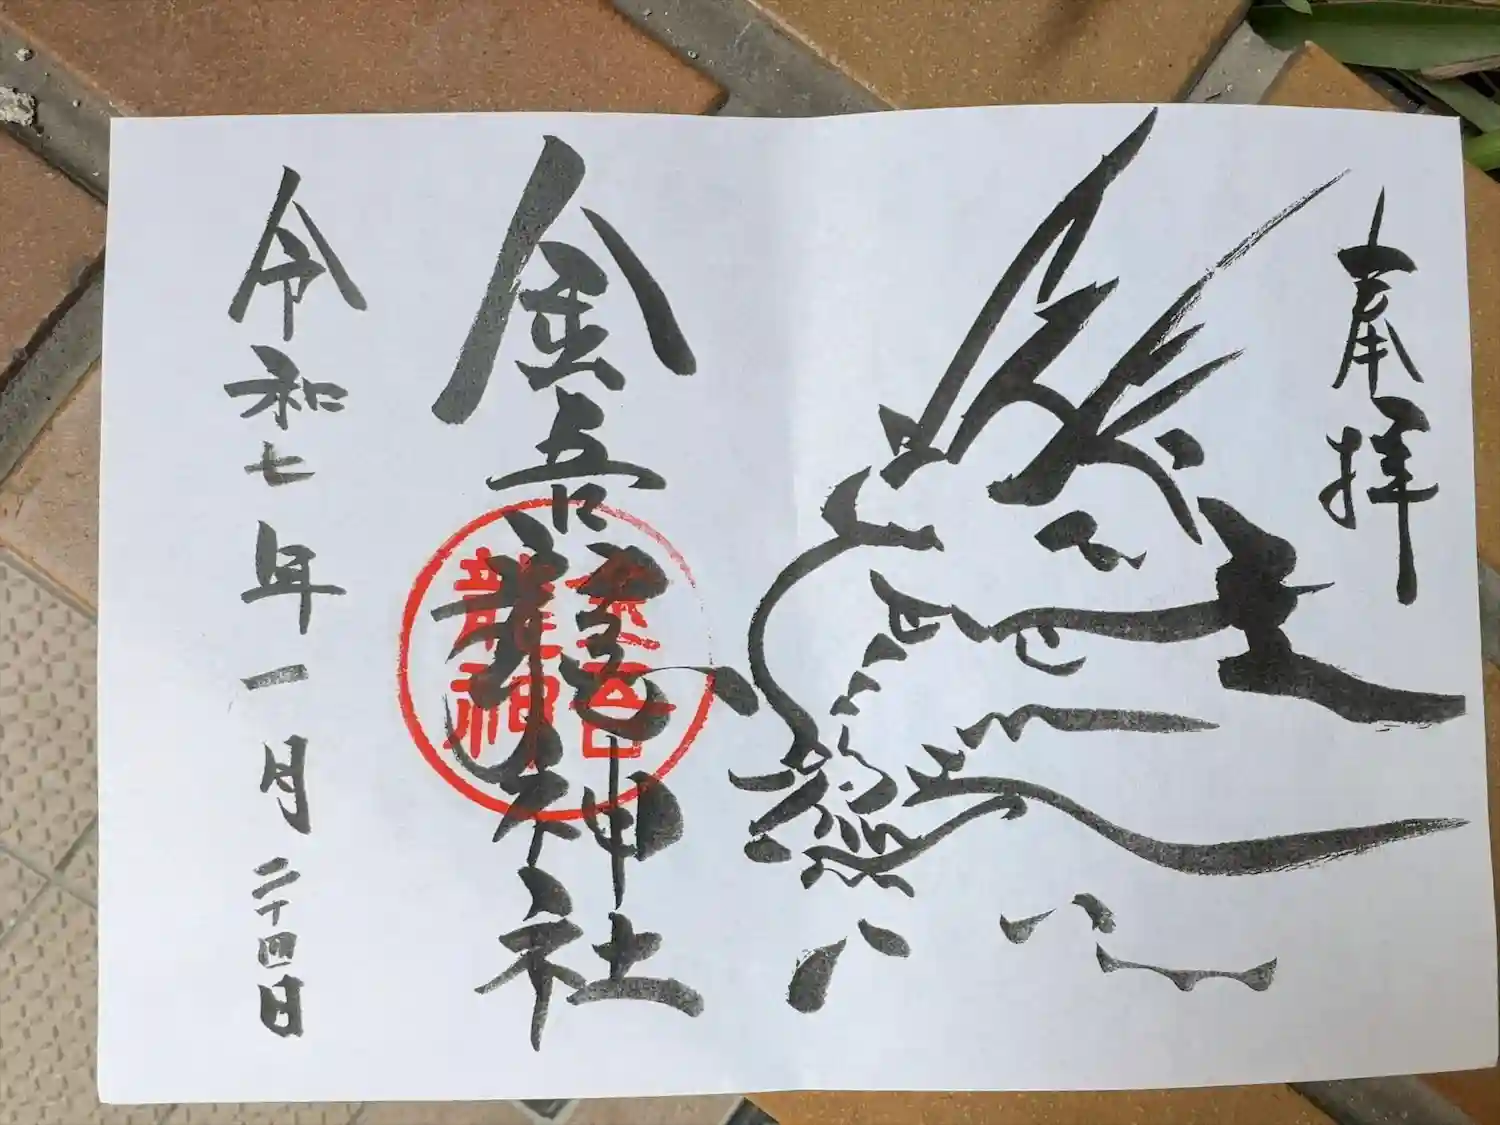 奉拝
金吾龍神社
金吾
龍神
令和七年一月二十四日